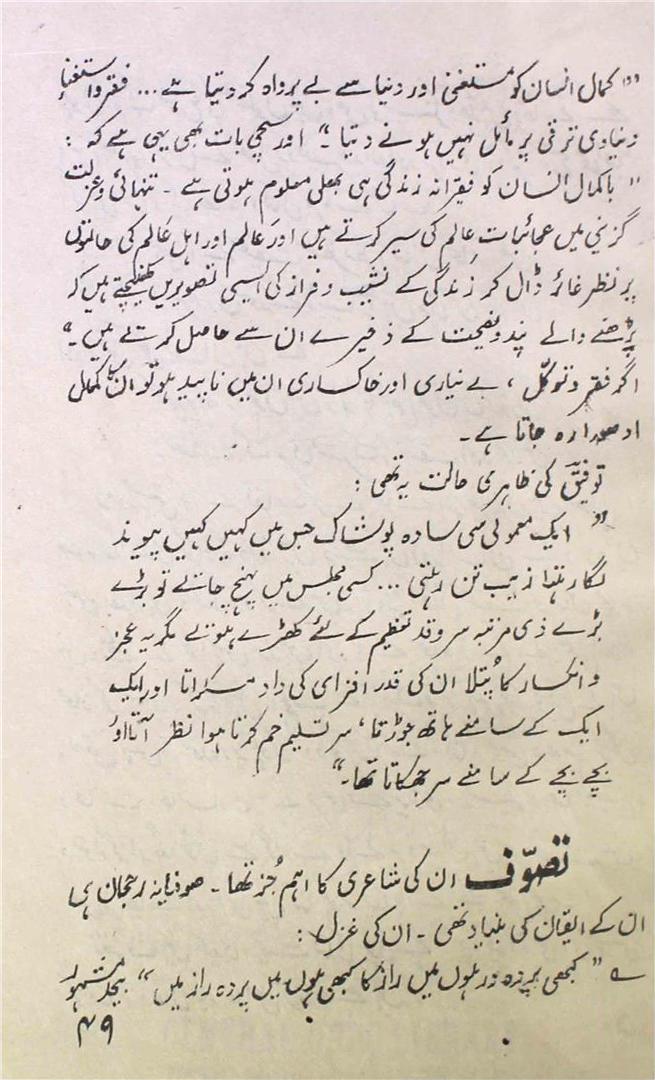 "کمال انسان کو مستغنی اور دنیا سے بے پرواہ کر دیتا ہے ... فقر و استغنا
دنیاوی ترقی پر مائل نہیں ہونے دیتا۔" اور سچی بات بھی یہی ہے کہ :
"باکمال انسان کو فقیرانہ زندگی ہی بھلی معلوم ہوتی ہے ۔ تنہائی و عزلت
گزینی میں عجائبات عالم کی سیر کرتے ہیں اور عالم اور اہل عالم کی حالتوں
پر نظر غائر ڈال کر زندگی کے نشیب و فراز کی ایسی تصویریں کھینچتے ہیں کہ
پڑھنے والے پند و نصیحت کے ذخیرے ان سے حاصل کرتے ہیں ۔"
اگر فقر و توکّل ، بے نیازی اور خاکساری ان میں ناپید ہو تو ان کا کمال
ادھورا رہ جاتا ہے ۔
توفیقؔ کی ظاہری حالت یہ تھی :
" ایک معمولی سی سادہ پوشاک جس میں کہیں کہیں پیوند
لگا رہتا زیب تن رہتی ... کسی مجلس میں پہنچ جاتے تو بڑے
بڑے ذی مرتبہ سروقد تعظیم کے لئے کھڑے ہوتے مگر یہ عجز
و انکسار کا پُتلا ان کی قدر افزائی کی داد مسکراتا اور ایک
ایک کے سامنے ہاتھ جوڑتا ، سر تسلیم خم کرتا ہوا نظر آتا اور
بچے بچے کے سامنے سر جھکاتا تھا۔"
تصوّف ان کی شاعری کا اہم جُز تھا ۔ صوفیانہ رجحان ہی
ان کے ایقان کی بنیاد تھی ۔ ان کی غزل :
ے "کبھی پردہ در ہوں میں راز کا کبھی ہوں میں پردہ راز میں" بیحد مشہور
۴۹